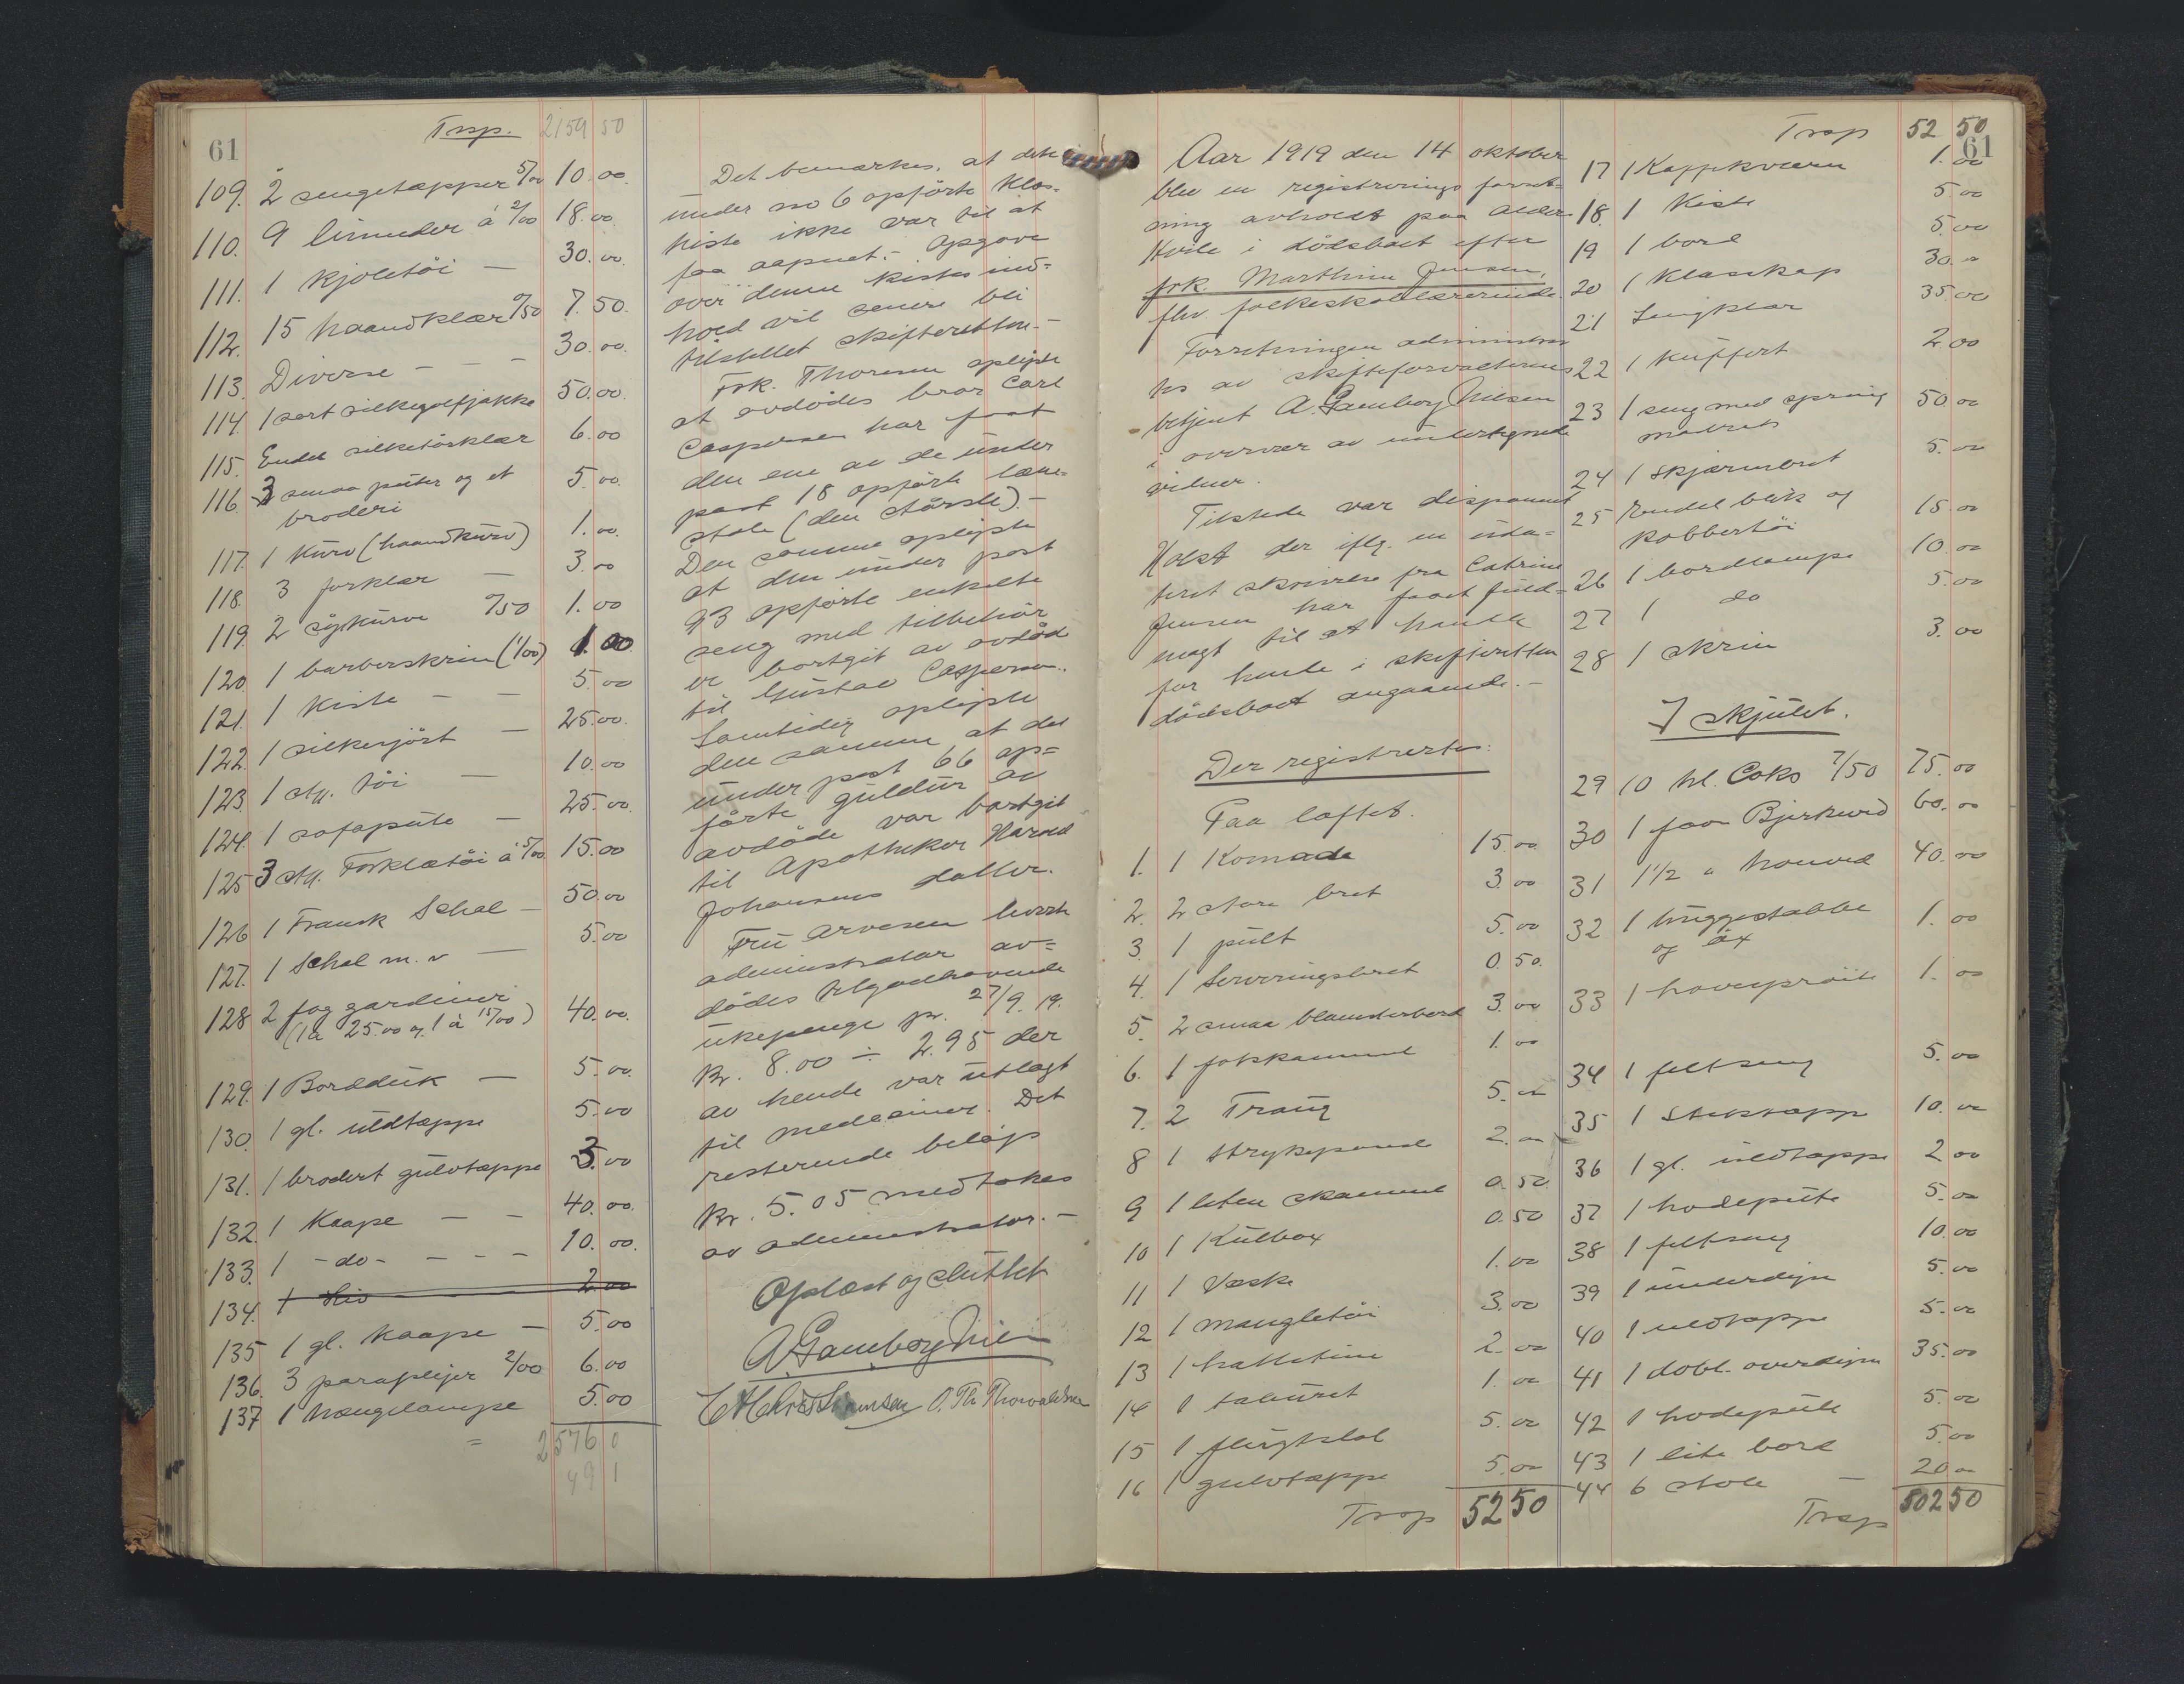 61
Trsp. 2159 50
109. 2 sengetæpper 5/00 10.00.
110. 9 linneder á 2/00 18.00
111. 1 kjoletöi — 30.00.
112. 15 haandklær 0/50 7.50.
113. Diverse - - - 30.00.
114. 1 sort silkegolfjakke 50.00.
115. Endel silketörklær 6.00
116. 3 smaa puter og et 5.00.
broderi
117. 1 Kurv (haandkurv) 1.00.
118. 3 forklær — 3.00
119. 2 sykurve 0/50 1.00
120 1 barberskrin (1/00) 1.00.
121. 1 Kiste — — 5.00
122. 1 silkesjört — 25.00.
123. 1 stk. töi — 10.00
124. 1 sofapute — 25.00.
125 3 stk. Forklætöi á 5/00. 15.00
126 1 Fransk Schal — 50.00
127. 1 Schal m.v — 5.00
128 2 fag gardiner
(1 á 25.00 og 1 á 15/00) 40.00.
129. 1 Bordduk — 5.00.
130. 1 gl. uldtæppe 5.00
131. 1 brodert gulvtæppe 3.00
132. 1 Kaape — — 40.00.
133. 1 -do- - - - 10.00.
134. 1 Liv 2.00
135 1 gl. Kaape — 5.00
136. 3 paraplyer 2/00 6.00
137 1 hængelampe 5.00
= 2576 0
49 1
Det bemærkes, at dete
under no 6 opförte Klæs-
kiste ikke var til at
faa aapnet. - Opgave
over denne kistes ind=
hold vil senere bli
tilstillet skifteretten. -
Frk. Thoresen oplyste
at avdödes bror Carl
Caspersen har faat
den ene av de under
post 18 opförte læne=
stole (den störste). -
Den samme oplyste
at den under post
93 opförte enkelte
seng med tilbehör
er bortgit av avdöd
til Gustav Caspersen.
Samtidig oplyste
den samme at det
under post 66 op=
förte guldur av
avdöde var bortgit
til Apotheker Harald
Johansens datter.
Fru Arvesen leverte
administrator av=
dödes tilgodehavende
ukepenge pr. 27/9. 19.
Kr. 8.00 ÷ 2.95 der
av hende var utlagt
til medeciner. Det
resterende belöp
Kr. 5.05 medtakes
av administrator. -
Oplæst og sluttet
A. Gamborg Nilsen
O. Th. Thorvaldsen
61
Aar 1919 den 14 oktober
blev en registrerings forret=
ning avholdt paa Alders
Hvile i dödsboet efter
frk. Marthine Jensen,
fhv. folkeskolelærerinde.
Forretningen administrer
tes av skifteforvalterens
betjent A. Gamborg Nilsen
i overvær av undertegnede
vidner.
Tilstede var disponent
Holst der iflg. en uda=
teret skrivelse fra Catrine
Jensen har faaet fuld=
magt til at handle
for hende i skifteretten
dödsboet angaaende. -
Der registrertes:
Paa loftet.
1. 1 Komode 15.00
2. 2 store bret 3.00
3. 1 pult 5.00
4. 1 Serveringsbret 0.50.
5. 2 smaa blomsterbord 3.00
6. 1 fotskammel 1.00
7. 2 Trau 5.00
8 1 strykepande 2.00
9 1 liten skammel 0.50.
10 1 Kulbox 0.50
11 1 Væske 1.00
12 1 mangletöi 3.00
13 1 hattetine 2.00
14 1 taburet 1.00
15 1 flugtstol 5.00
16 1 gulvtæppe 5.00
Trsp 52 50
Trsp 52 50
17 1 Kaffekværn 1.00
18. 1 Kiste 5.00
19 1 bord 5.00
20 1 Klæsskap 30.00
21 Sengklær 35.00
22 1 Kuffert 2.00
23 1 seng med spring 50.00
madrets
24 1 skjærmbret 5.00
25 Endel blik og
Kobbertöi 15.00
26 1 bordlampe 10.00
27 1 do 5.00
28 1 skrin 3.00
I skjulet.
29 10 hl. Coks 7/50 75.00
30 1 favn Bjerkeved 60.00
31 1 1/2 " 40.00
32 1 huggestabbe
og öx 1.00
33 1 havespröite 1.00
34 1 feltseng 5.00
35 1 Stikktæppe 10.00
36 1 gl. uldtæppe 2.00
37 1 hodepute 5.00
38 1 feltseng 10.00
39 1 underdyne 5.00
40 1 uldtæppe 5.00
41 1 dobl. overdyne 35.00
42 1 hodepute 5.00
43 1 lite bord 5.00
44 6 stole — 20.00
Trsp 502 50